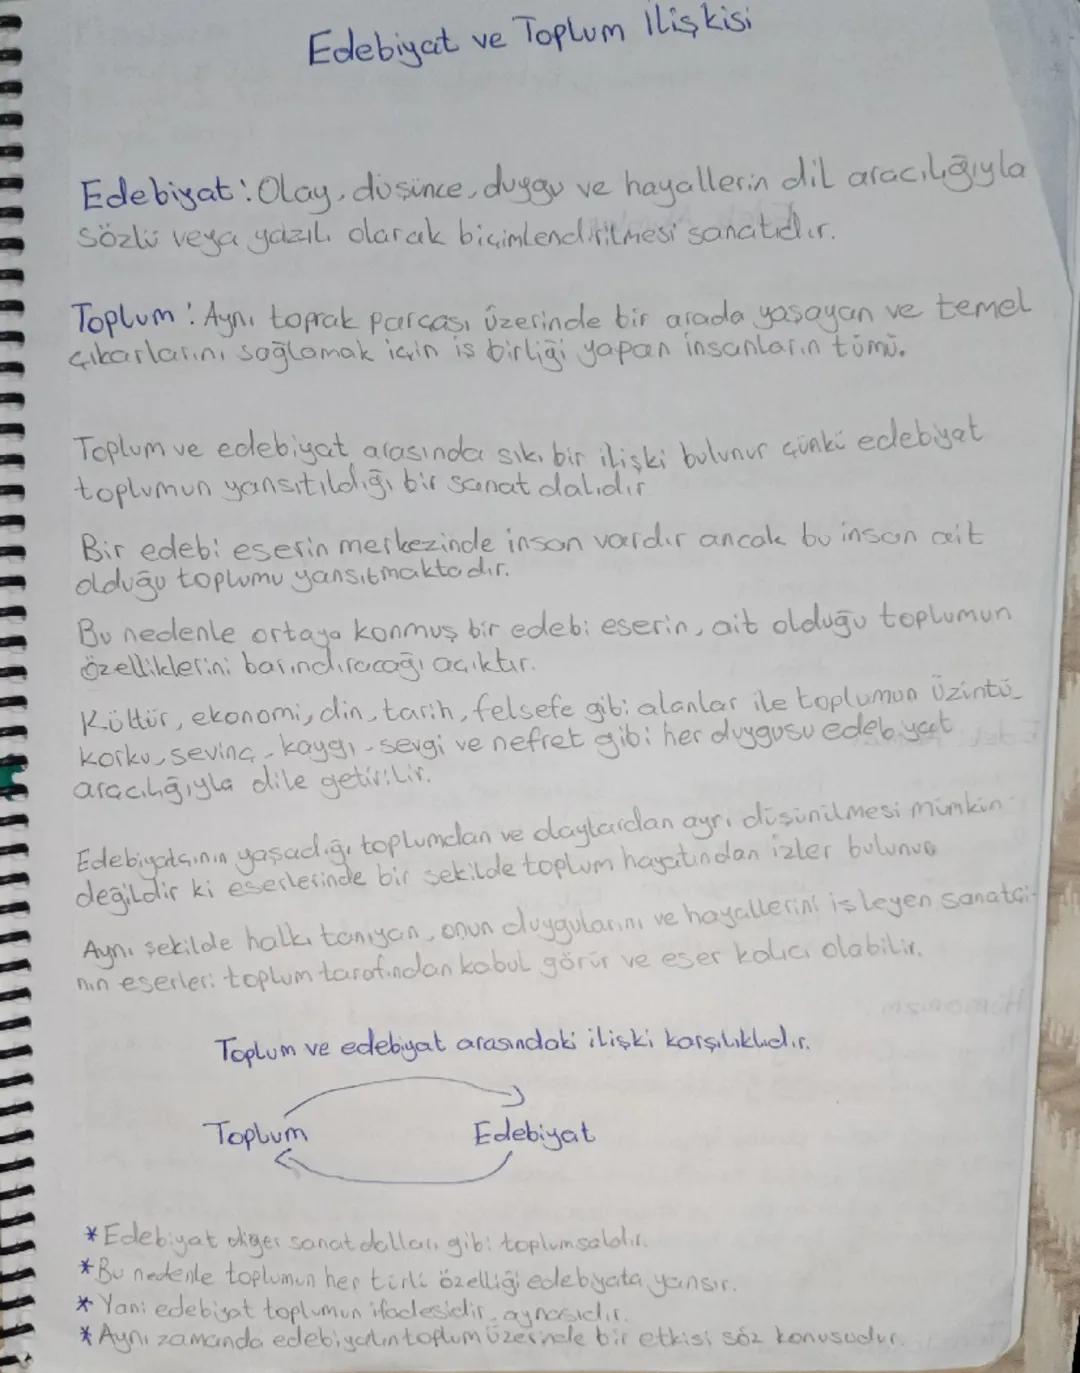 Edebiyat ve Toplum İlişkisi
Edebiyat: Olay, düşünce, duygu ve hayallerin dil aracılığıyla
sözlü veya yazılı olarak biçimlendirilmesi sanatıdır.
Toplum: Aynı toprak parçası üzerinde bir arada yaşayan ve temel
çıkarlarını sağlamak için iş birliği yapan insanların tümü.
Toplum ve edebiyat arasında sıkı bir ilişki bulunur çünkü edebiyat
toplumun yansıtıldığı bir sanat dalıdır
Bir edebi eserin merkezinde insan vardır ancak bu insan ait
olduğu toplumu yansıtmaktadır.
Bu nedenle ortaya konmuş bir edebi eserin, ait olduğu toplumun
özelliklerini barındıracağı açıktır.
Kültür, ekonomi, din, tarih, felsefe gibi alanlar ile toplumun üzüntü,
korku, sevinç, kaygı, sevgi ve nefret gibi her duygusu edebiyat
aracılığıyla dile getirilir.
Edebiyatçının yaşadığı toplumdan ve olaylardan ayrı düşünülmesi mümkün
değildir ki eserlerinde bir şekilde toplum hayatından izler bulunur
Aynı şekilde halkı tanıyan, onun duygularını ve hayallerini işleyen sanatçı-
nın eserleri toplum tarafından kabul görür ve eser kalıcı olabilir.
Toplum ve edebiyat arasındaki ilişki karşılıklıdır.
Toplum Edebiyat
* Edebiyat diğer sanat dalları gibi toplumsaldır.
* Bu nedenle toplumun her türlü özelliği edebiyata yansır.
* Yani edebiyat toplumun ifadesidir, aynasıdır.
* Aynı zamanda edebiyatın toplum üzerinde bir etkisi söz konusudur.